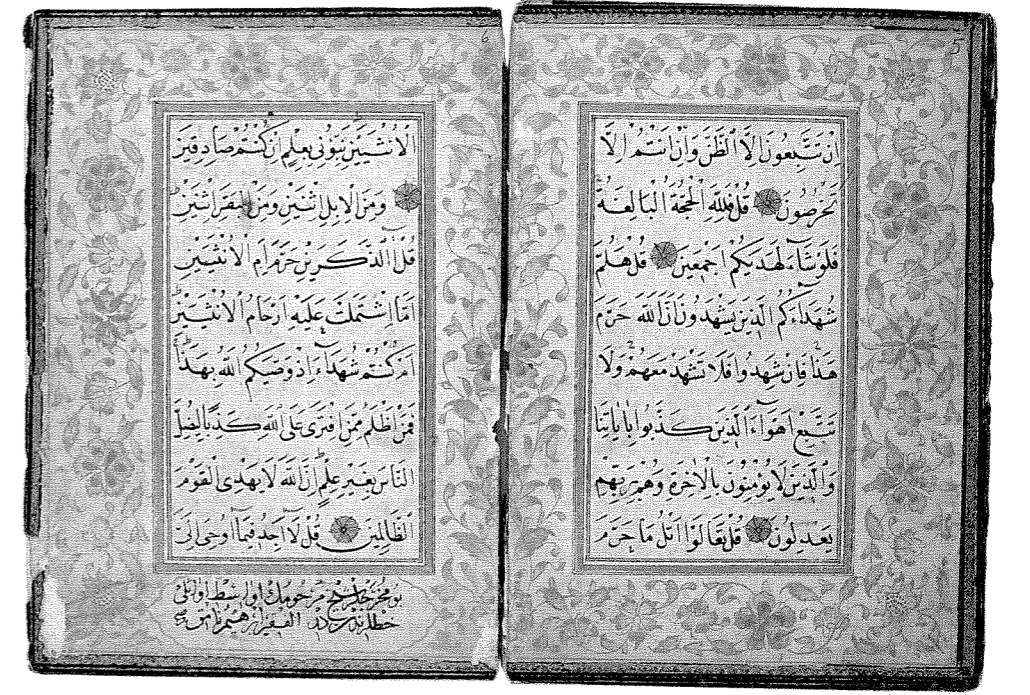 5
اِنْ تَتَّبِعُونَ اِلَّا الظَّنَّ وَاِنْ اَنْتُمْ اِلَّا
تَخْرُصُونَ قُلْ فَلِلّٰهِ الْحُجَّةُ الْبَالِغَةُ
فَلَوْ شَآءَ لَهَدٰيكُمْ اَجْمَعِينَ قُلْ هَلُمَّ
شُهَدَآءَكُمُ الَّذِينَ يَشْهَدُونَ اَنَّ اللّٰهَ حَرَّمَ
هٰذَا فَاِنْ شَهِدُوا فَلَا تَشْهَدْ مَعَهُمْ وَلَا
تَتَّبِعْ اَهْوَآءَ الَّذِينَ كَذَّبُوا بِاٰيَاتِنَا
وَالَّذِينَ لَا يُؤْمِنُونَ بِالْاٰخِرَةِ وَهُمْ بِرَبِّهِمْ
يَعْدِلُونَ قُلْ تَعَالَوْا اَتْلُ مَا حَرَّمَ
6
الْاُنْثَيَيْنِ نَبِّؤُنِي بِعِلْمٍ اِنْ كُنْتُمْ صَادِقِينَ
وَمِنَ الْاِبِلِ اثْنَيْنِ وَمِنَ الْبَقَرِ اثْنَيْنِ
قُلْ آٰلذَّكَرَيْنِ حَرَّمَ اَمِ الْاُنْثَيَيْنِ
اَمَّا اشْتَمَلَتْ عَلَيْهِ اَرْحَامُ الْاُنْثَيَيْنِ
اَمْ كُنْتُمْ شُهَدَآءَ اِذْ وَصّٰيكُمُ اللّٰهُ بِهٰذَا
فَمَنْ اَظْلَمُ مِمَّنِ افْتَرٰى عَلَى اللّٰهِ كَذِبًا لِيُضِلَّ
النَّاسَ بِغَيْرِ عِلْمٍ اِنَّ اللّٰهَ لَا يَهْدِى الْقَوْمَ
الظَّالِمِينَ قُلْ لَآ اَجِدُ فِيمَآ اُوحِىَ اِلَىَّ